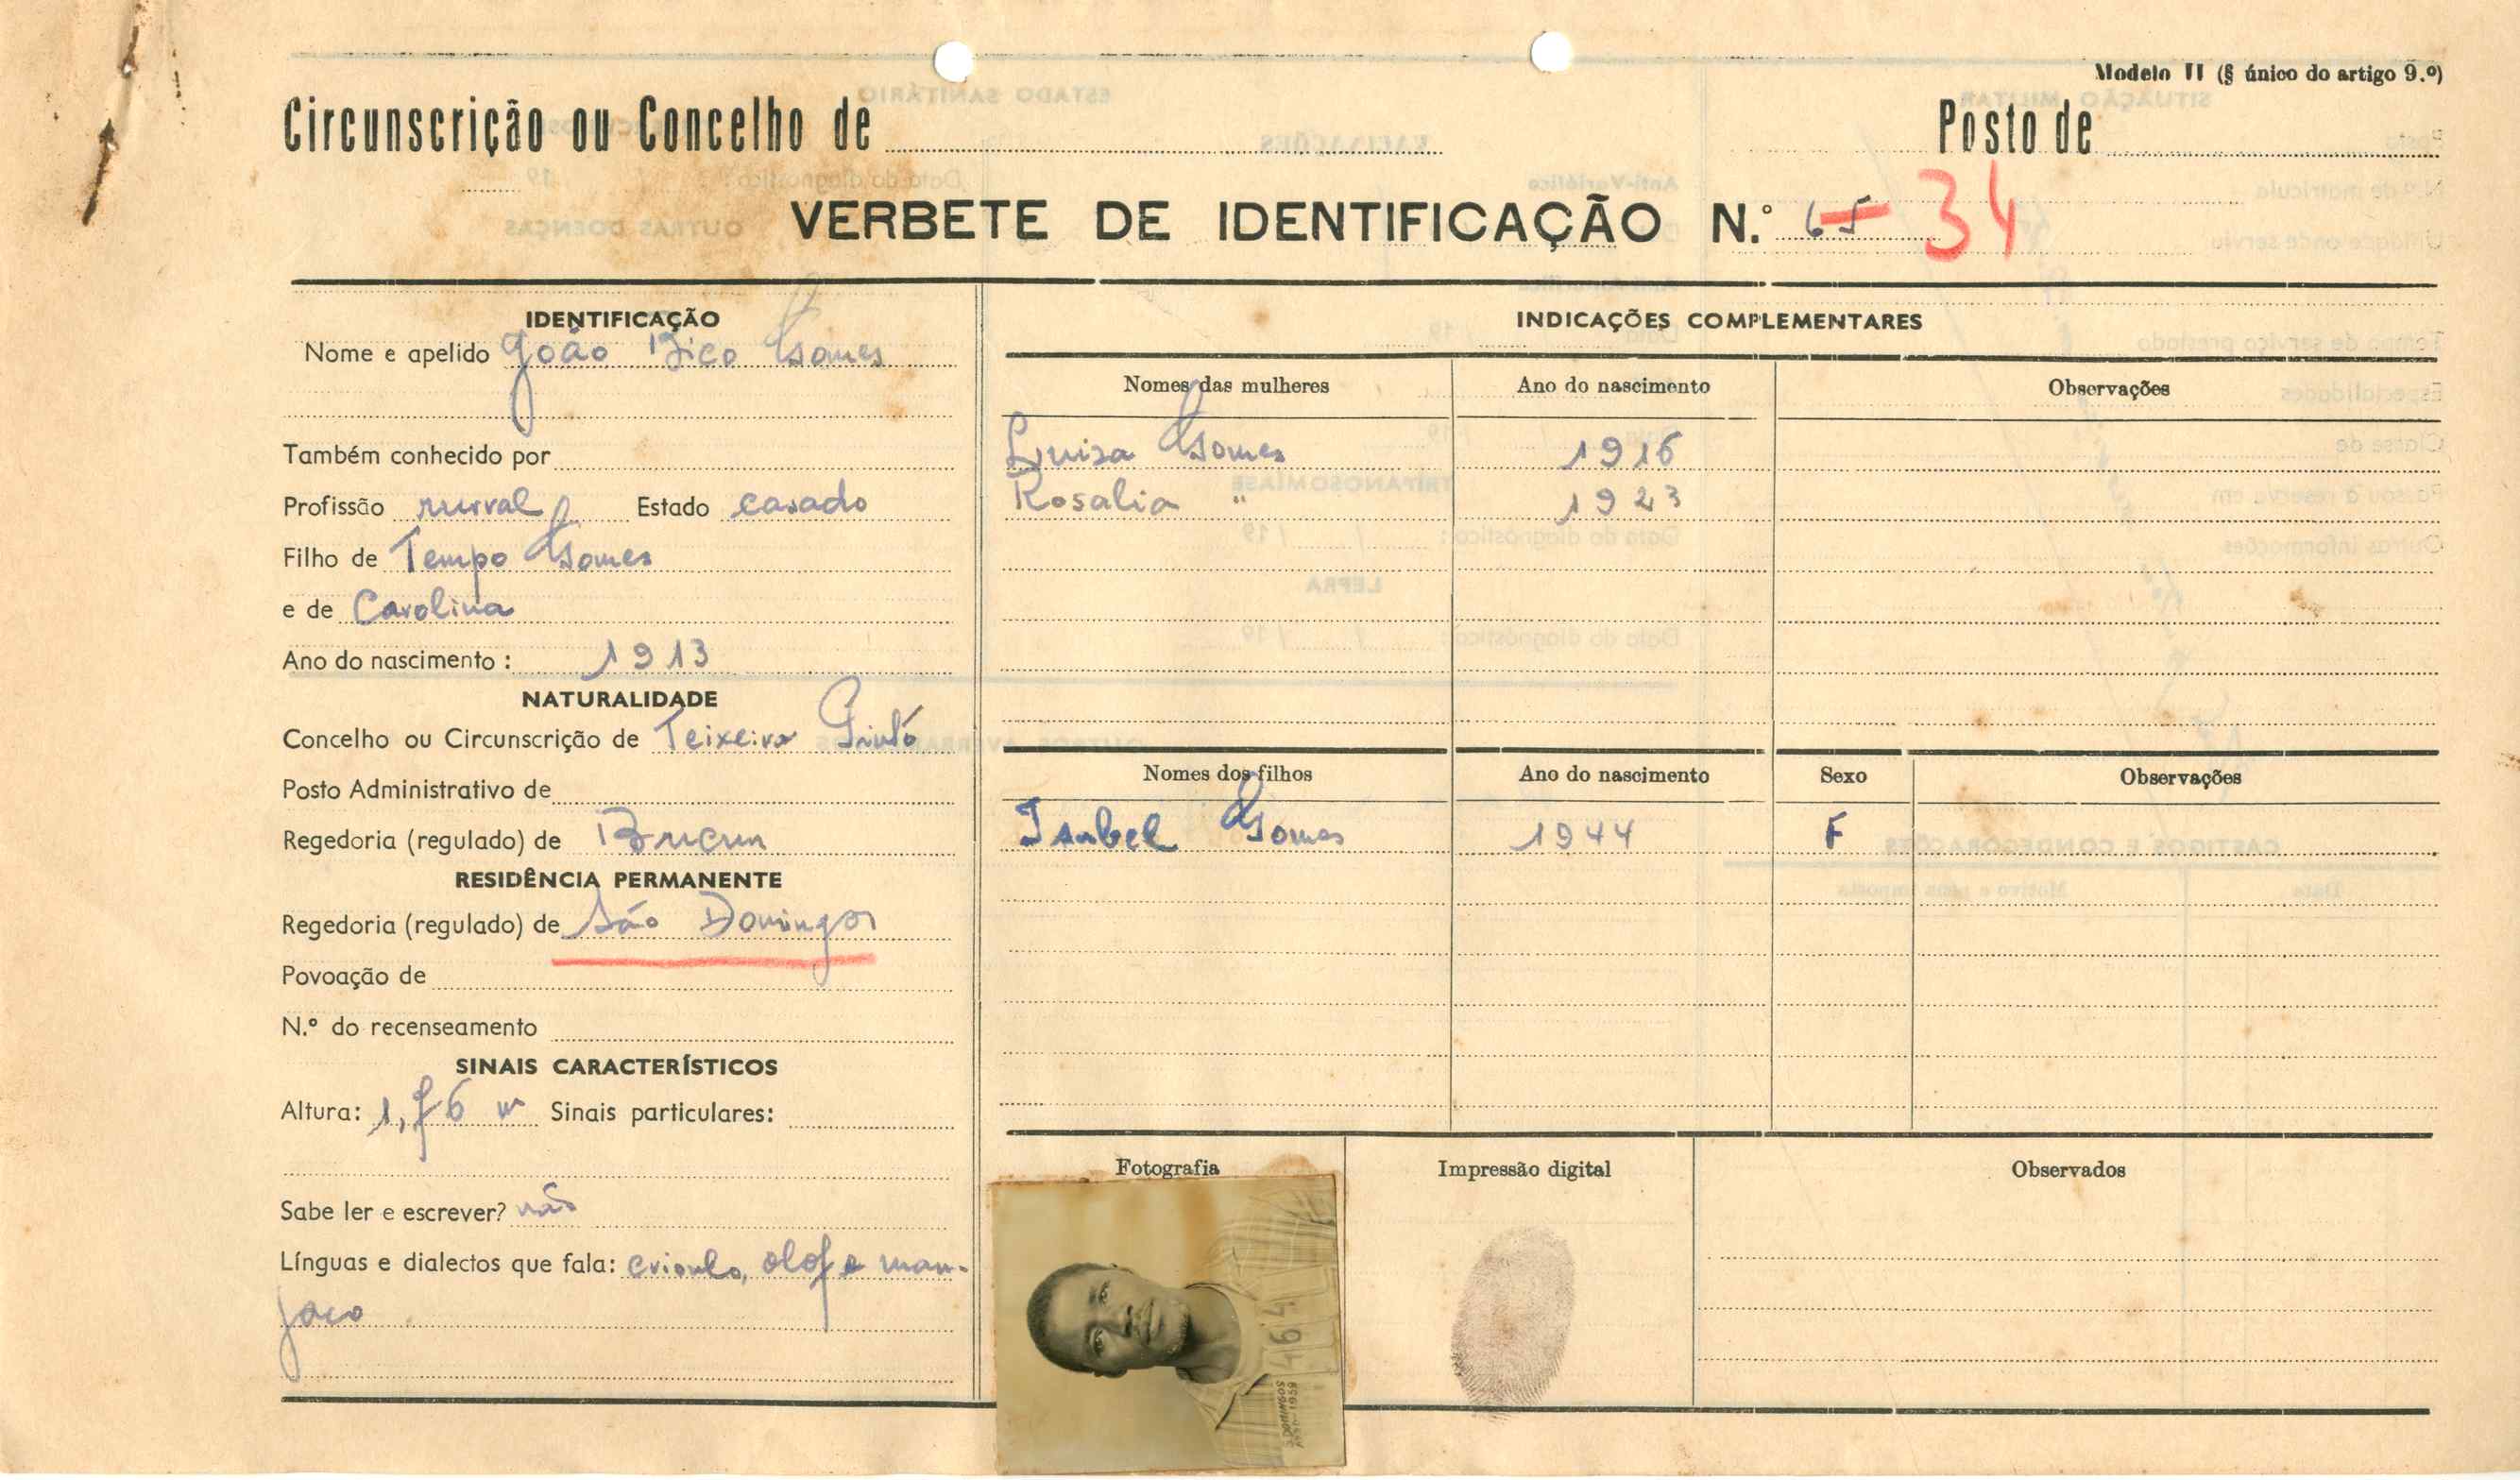 Modelo II (§ único do artigo 9.º)
Circunscrição ou Concelho de
Posto de
VERBETE DE IDENTIFICAÇÃO N.º 65 34
IDENTIFICAÇÃO
Nome e apelido João Bico Gomes
Também conhecido por
Profissão rurral Estado casado
Filho de Tempo Gomes
e de Carolina
Ano do nascimento : 1913
NATURALIDADE
Concelho ou Circunscrição de Teixeira Pinto
Posto Administrativo de
Regedoria (regulado) de Brucun
RESIDÊNCIA PERMANENTE
Regedoria (regulado) de São Domingos
Povoação de
N.º do recenseamento
SINAIS CARACTERÍSTICOS
Altura: 1,76 m Sinais particulares:
Sabe ler e escrever? não
Línguas e dialectos que fala: crioulo, olof e man-
jaco
INDICAÇÕES COMPLEMENTARES
Nomes das mulheres Ano do nascimento Observações
Luisa Gomes 1916
Rosalia " 1923
Nomes dos filhos Ano do nascimento Sexo Observações
Isabel Gomes 1944 F
Fotografia Impressão digital Observados
DOMINGOS
1959